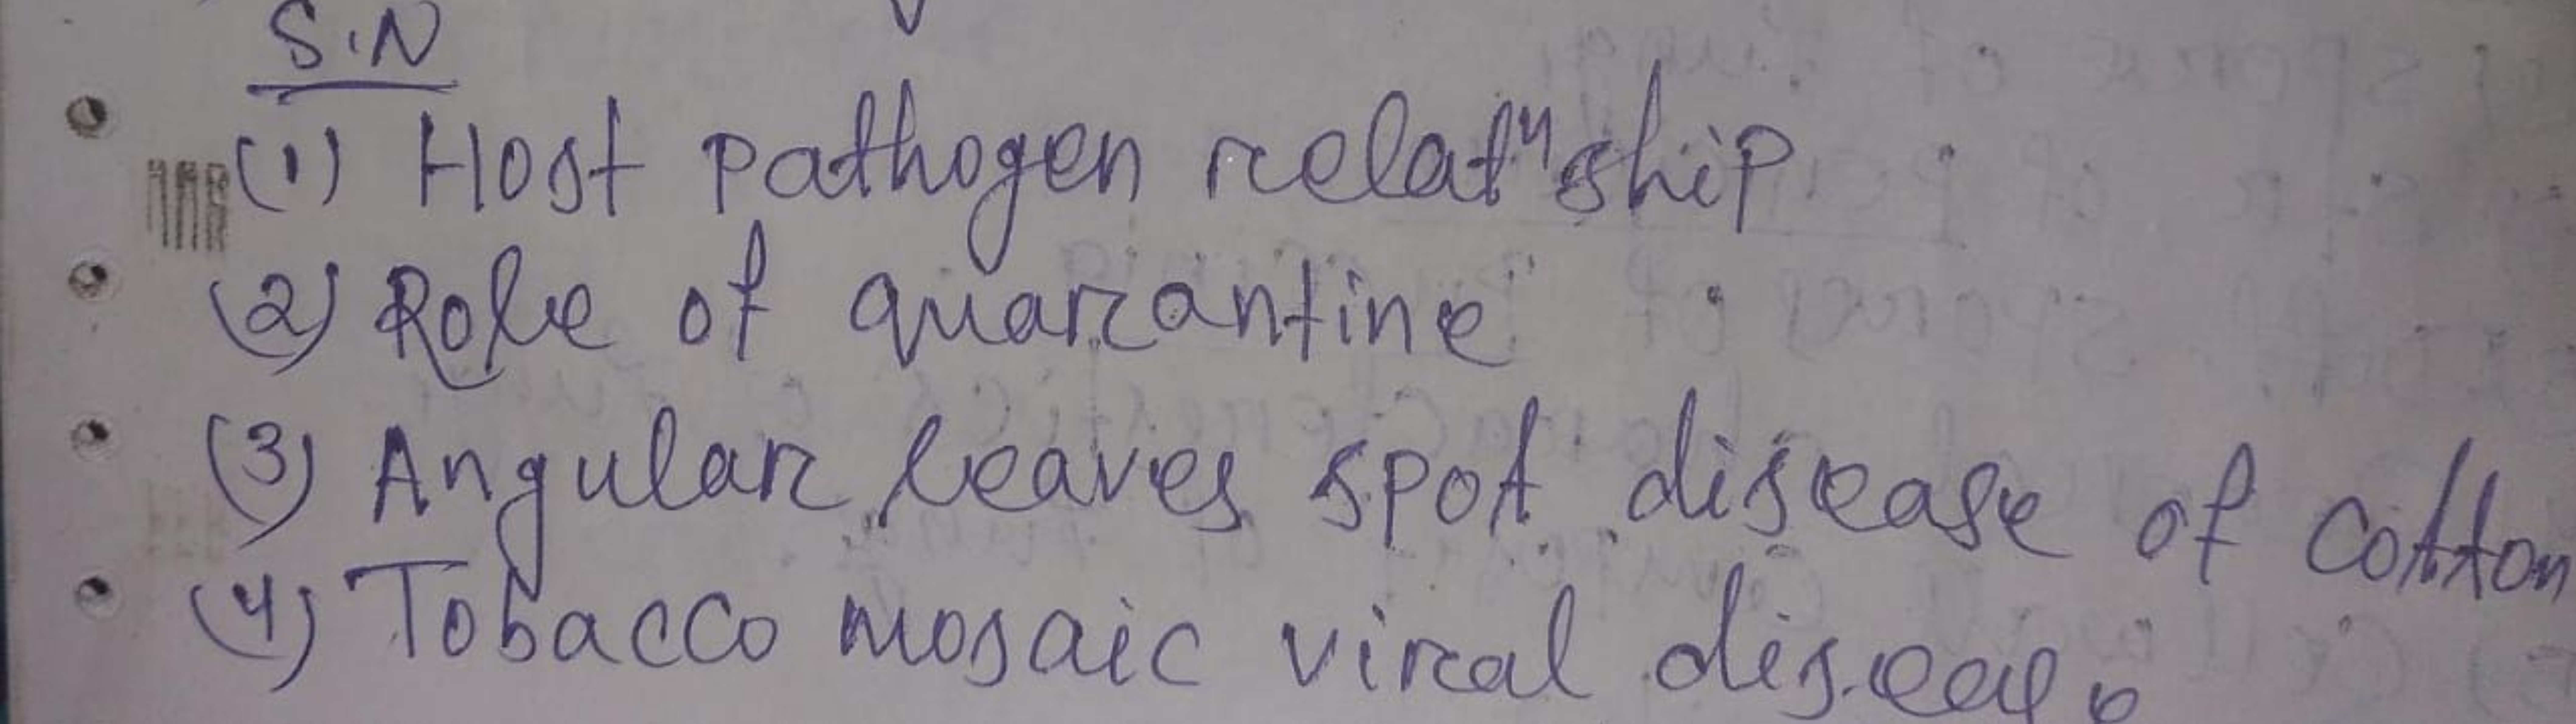 S.N
(1) Host pathogen relatⁿship
(2) Role of quarantine
(3) Angular leaves spot disease of cotton
(4) Tobacco mosaic viral disease